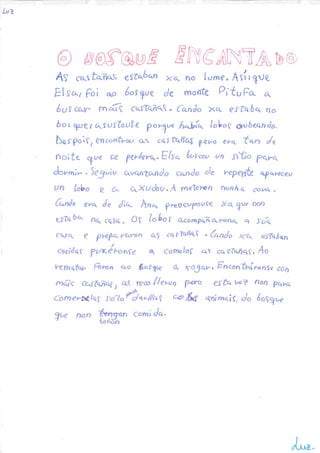 Luz
O BOSQUE ENCANTADO
As castañas estaban xa no lume. Así que
Elsa, foi ao bosque de monte Pitufa a
buscar máis castañas. Cando xa estaba no
bosque, asustouse porque había lobos oubeando.
Despois, encontrou as castañas pero era tan de
noite que se perdera. Elsa buscou un sitio para
durmir. Seguiu avanzando cando de repente apareceu
un lobo e a axudou. A meteron nunha cova.
Cando era de día Ana, preocupouse xa que non
estaba na casa. Os lobos acompañarona a súa
casa e prepararon as castañas. Cando xa estaban
cocidas puxéronse a comelas as castañas. Ao
rematar foron ao bosque a xogar. Encontráronse con
máis castañas, as recolleron pero esta vez non para
comerselas solo darllas aos animais do bosque
que non tengan comida.
teñan
Luz.